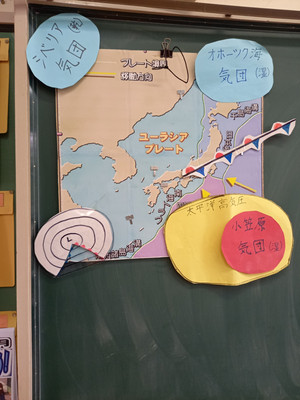 シベリア(乾)
気団
オホーツク海
気団(湿)
プレート境界
ユーラシア
プレート
千島海溝
太平洋高気圧
小笠原
気団(湿)